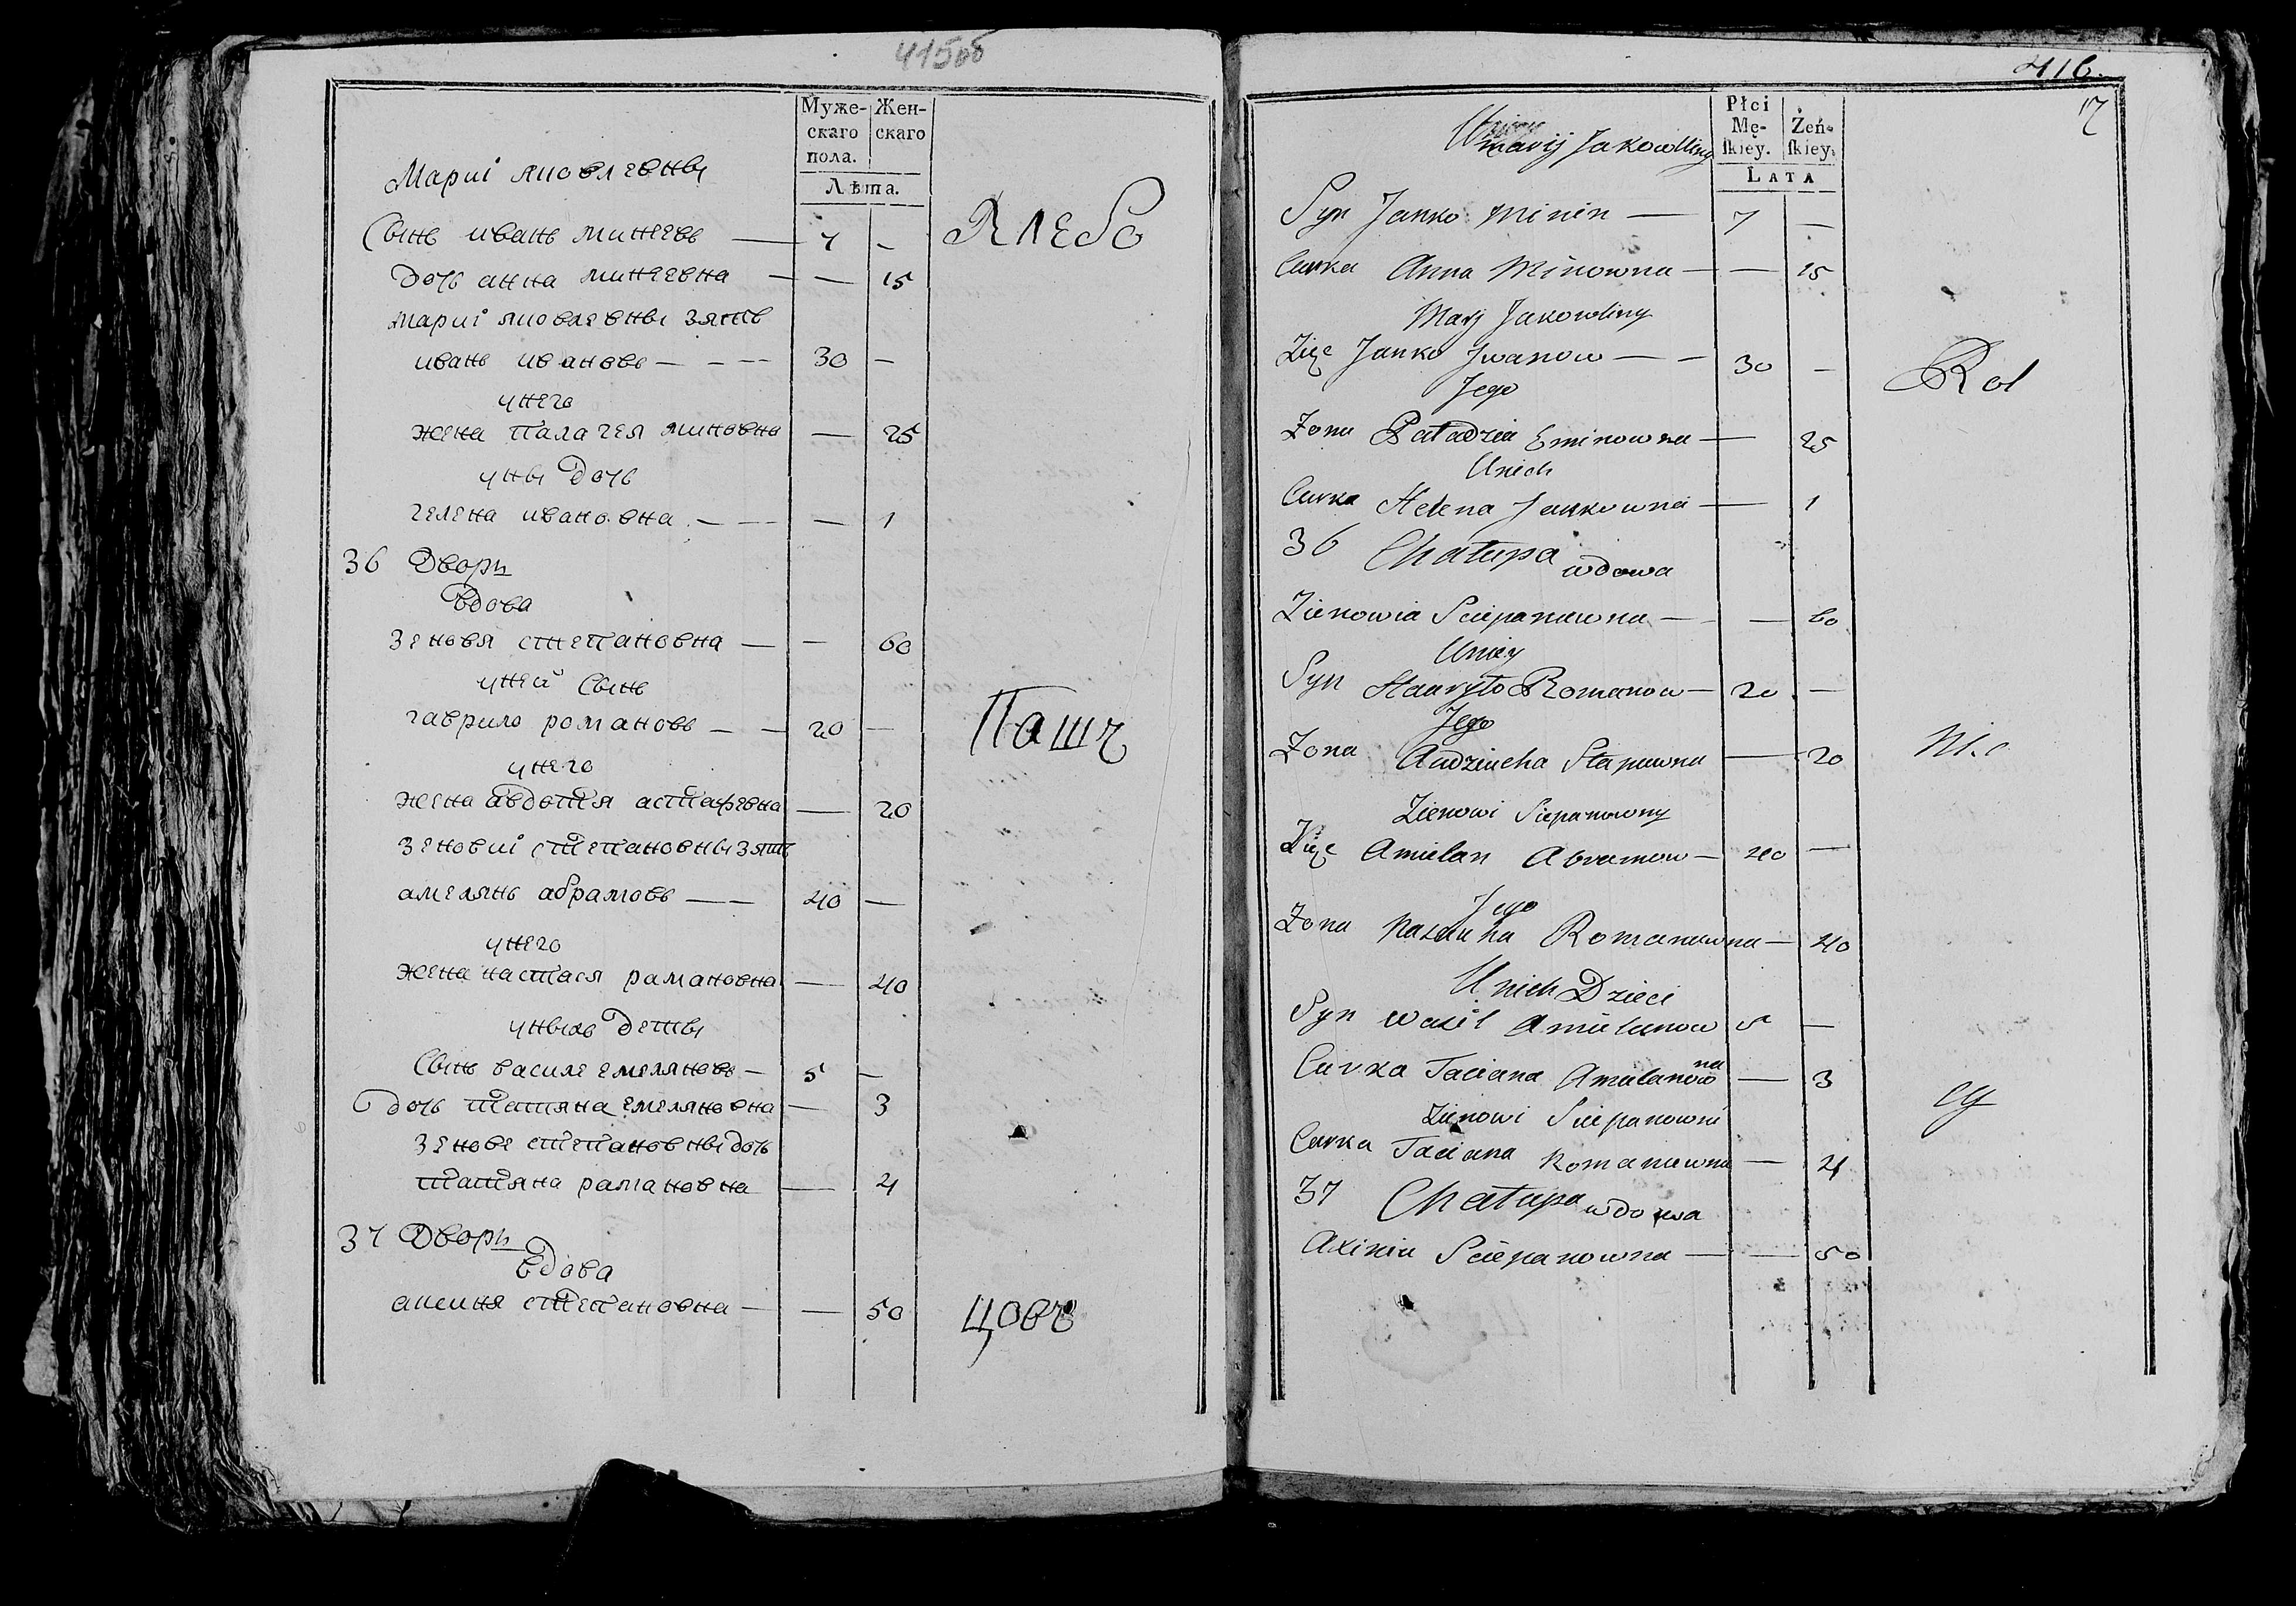 415об
Муже-
скаго
пола.
Жен-
скаго
Лѣта.
Мариі яковлевны
Сынъ иванъ минеевъ — 7 —
дочь анна минеевна — — 15
Мариі яковлевны зять
иванъ ивановъ — 30 —
унего
жена палагея миновна — 25
уны дочь
гелена ивановна — — 1
36 Дворъ
вдова
зеновя степановна — — 60
уней сынъ
гаврило романовъ — 20 —
унего
жена авдотя астафевна — 20
зеновиі степановны зять
амелянъ абрамовъ — 40 —
унего
жена настася рамановна — 40
уныхъ дети
Сынъ василе емеляновъ — 5 —
дочь татяна емеляновна — 3
зенове степановны дочь
татяна рамановна — 4
37 Дворъ
вдова
аксиня степановна — — 50
хлебо
Пашч
цовъ
416.
17
Płci
Mę-
skiey.
Żeń-
skiey.
LATA
Maryi Jakowliny
Syn Janko Minin — 7 —
Curka Anna Minowna — — 15
Mary Jakowliny
Zięc Janko Jwanow — — 30 —
Jego
Zona Paładzia Eminowna — 25
Unich
Curka Helena Jankowna — 1
36 Chałupa wdowa
Zienowia Sciepanowna — — 60
Uniey
Syn Hauryło Romanow — 20 —
Jego
Zona Audziucha Stapuwna — 20
Zienowi Sciepanowny
Zięc Amielan Abramow — 40 —
Jego
Zona Nastazyia Romanowna — 40
Unich Dzieci
Syn Wasil Amielanow 5 —
Curka Taciana Amielanowna — 3
Zienowi Sciepanowni
Curka Taciana Romanowna — 4
37 Chałupa wdowa
Axinia Sciepanowna — — 50
Rol
ni.c
cy